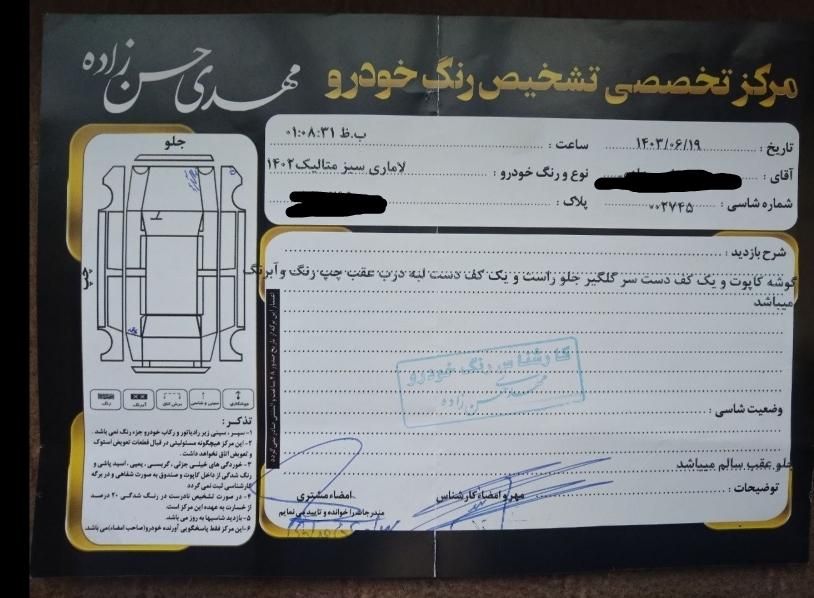 مرکز تخصصی تشخیص رنگ خودرو
مهدی حسن زاده
تاریخ : ۱۴۰۳/۰۶/۱۹
ساعت : ۰۱:۰۸:۳۱ ب.ظ
آقای :
نوع و رنگ خودرو : لاماری سبز متالیک۱۴۰۲
شماره شاسی : ۰۰۲۷۴۵
پلاک :
جلو
چپ
شرح بازدید :
گوشه کاپوت و یک کف دست سر گلگیر جلو راست و یک کف دست لبه درب عقب چپ رنگ وآبرنگ
میباشد
کارشناس رنگ خودرو
مهدی حسن زاده
وضعیت شاسی :
جلو عقب سالم میباشد
توضیحات :
مهر و امضاء کارشناس
امضاء مشتری
مندرجات را خوانده و تایید می نمایم
رنگ
آبرنگ
برش اتاق
سینی و شاسی
جوشکاری
تذکر :
۱- سپر ، سینی زیر رادیاتور و رکاب خودرو جزء رنگ نمی باشد .
۲- این مرکز هیچگونه مسئولیتی در قبال قطعات تعویض استوک
و تعویض اتاق نخواهد داشت .
۳- خوردگی های خیلی جزئی، گریسی، پمپی، اسید پاشی و
رنگ شدگی از داخل کاپوت و صندوق به صورت شفاهی و در برگه
کارشناسی ثبت نمی گردد
۴- در صورت تشخیص نادرست در رنگ شدگی ۲۰ درصد
از خسارت به عهده این مرکز است.
۵- بازدید شاسیها به روز می باشد.
۶-این مرکز فقط پاسخگویی آورنده خودرو(صاحب امضاء)می باشد.